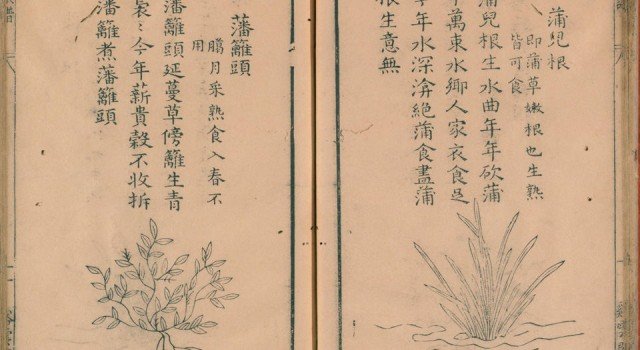 蒲兒根
即蒲草嫩根也生熟
皆可食
蒲兒根生水曲年年砍蒲
千萬束水鄉人家衣食足
今年水深渰絕蒲食盡蒲
根生意無
藩籬頭
臘月采熟食入春不
用
藩籬頭延蔓草傍籬生青
裊〻今年薪貴穀不收拆
藩籬煮藩籬頭